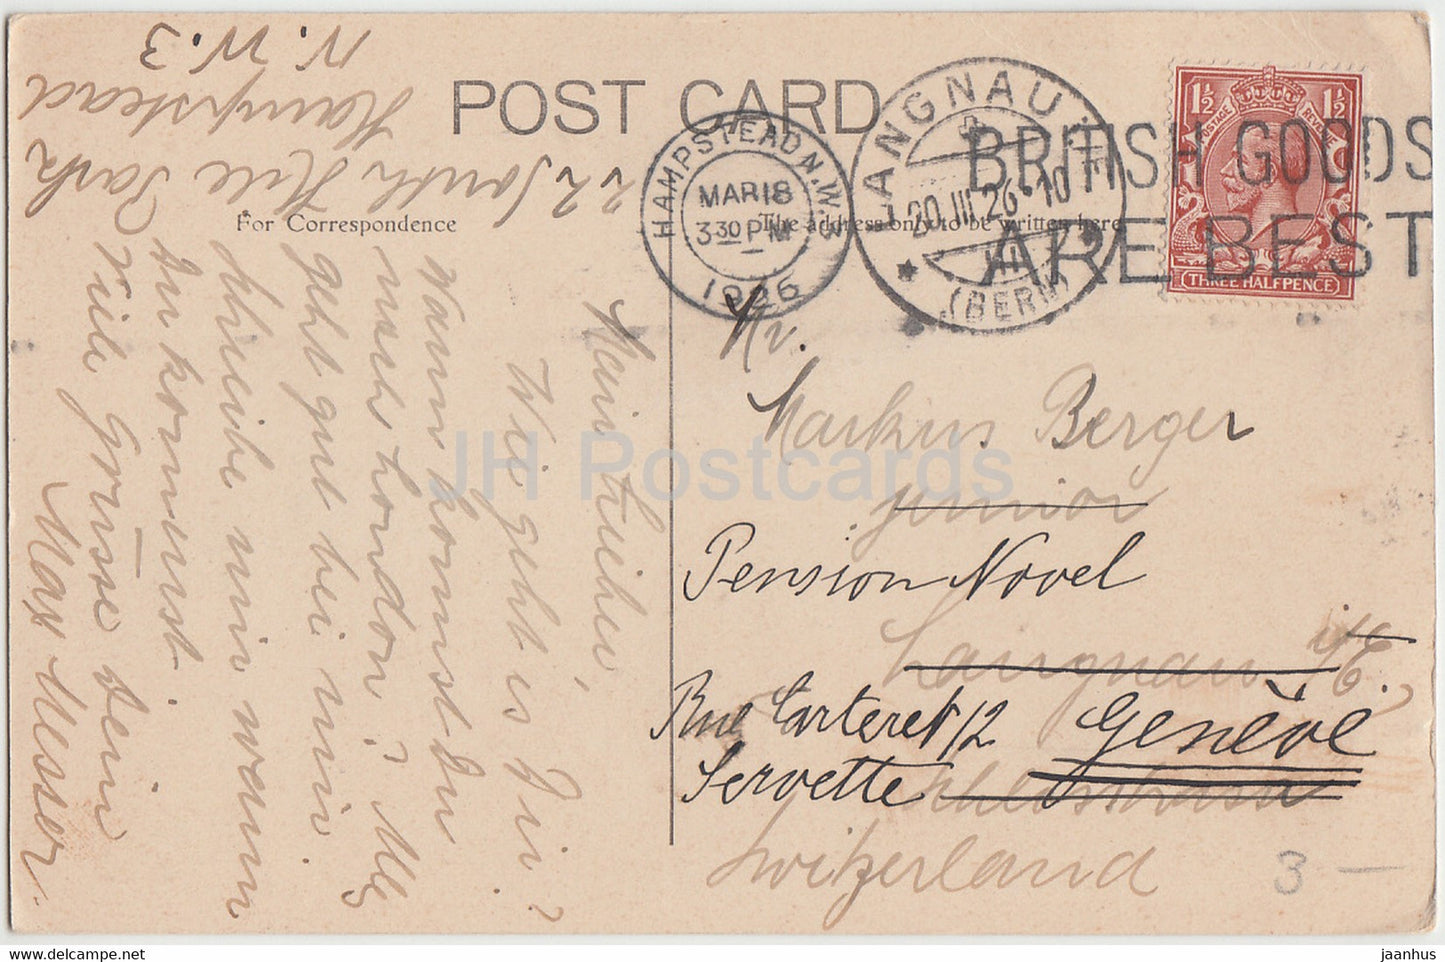 POST CARD
For Correspondence
The address only to be written here
HAMPSTEAD N.W.3
MAR 18
3.30 PM
1926
LANGNAU
20.III.26.10
III
(BERN)
BRITISH GOODS
ARE BEST
POSTAGE REVENUE
1½ 1½
THREE HALFPENCE
22 South Hill Park
Hampstead
N.W.3
Mein lieber,
Wie geht es Dir?
Wann kommst Du
nach London? Alles
geht gut bei mir.
Schreibe mir wann
Du kommst.
Viele Grüsse Dein
Max Messer
Mr.
Markus Berger
junior
Pension Novel
Langnau i/E.
Rue Carteret 12 Genève
Servette
Switzerland
3 —
JH Postcards
www.delcampe.net
jaanhus